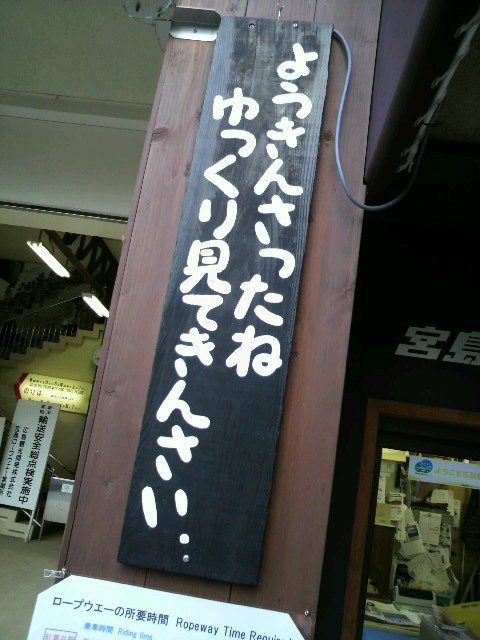 ようきんさったね
ゆっくり見てきんさい‥
宮島
のりば
輸送安全総点検実施中
広島観光開発株式会社
ロープウエーの所要時間 Ropeway Time Require
乗車時間 Riding time
ようこそ